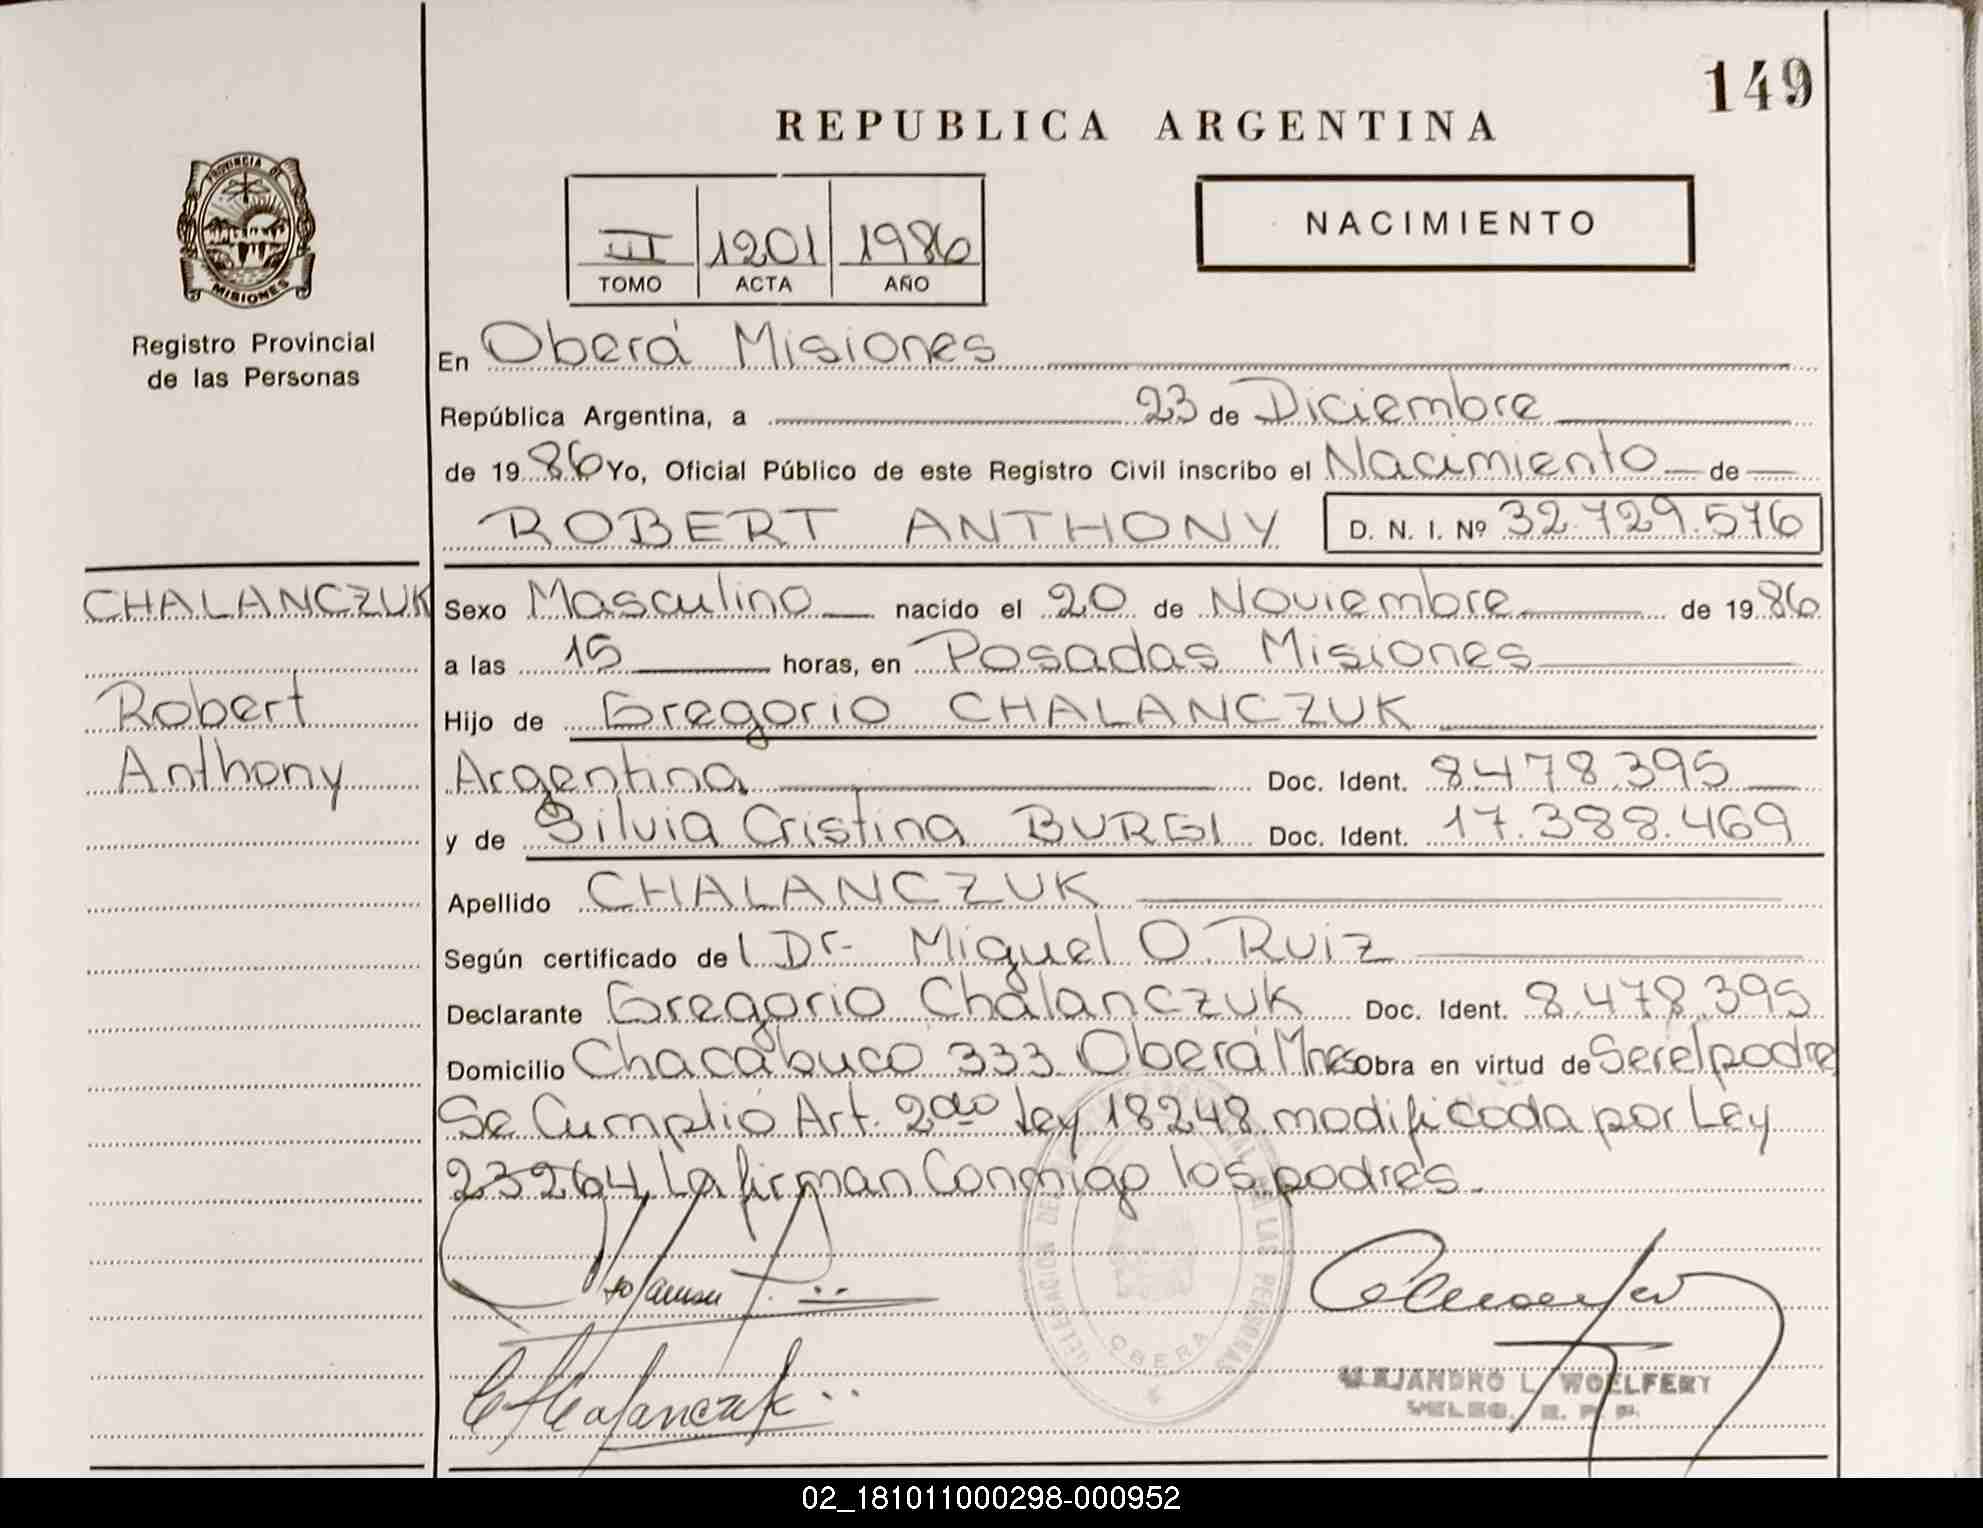 149
REPUBLICA ARGENTINA
PROVINCIA DE
MISIONES
Registro Provincial
de las Personas
III 1201 1986
TOMO ACTA AÑO
NACIMIENTO
En Oberá Misiones
República Argentina, a 23 de Diciembre
de 1986 Yo, Oficial Público de este Registro Civil inscribo el Nacimiento de
ROBERT ANTHONY D. N. I. Nº 32.729.576
CHALANCZUK
Robert
Anthony
Sexo Masculino nacido el 20 de Noviembre de 1986
a las 15 horas, en Posadas Misiones
Hijo de Gregorio CHALANCZUK
Argentina Doc. Ident. 8.478.395
y de Silvia Cristina BURGI Doc. Ident. 17.388.469
Apellido CHALANCZUK
Según certificado del Dr. Miguel O. Ruiz
Declarante Gregorio Chalanczuk Doc. Ident. 8.478.395
Domicilio Chacabuco 333 Oberá Mnes Obra en virtud de Ser el padre
Se Cumplió Art. 2do Ley 18248 modificada por Ley
23264 La firman Conmigo los padres.
DELEGACION DE LAS PERSONAS
OBERA
ALEJANDRO L. WOELFERT
02_181011000298-000952